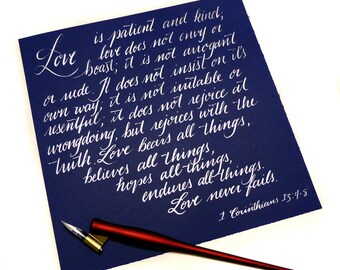 Love is patient and kind;
love does not envy or
boast; it is not arrogant
or rude. It does not insist on it's
own way; it is not irritable or
resentful; it does not rejoice at
wrongdoing, but rejoices with the
truth. Love bears all things,
believes all things,
hopes all things,
endures all things.
Love never fails.
1 Corinthians 13:4-8